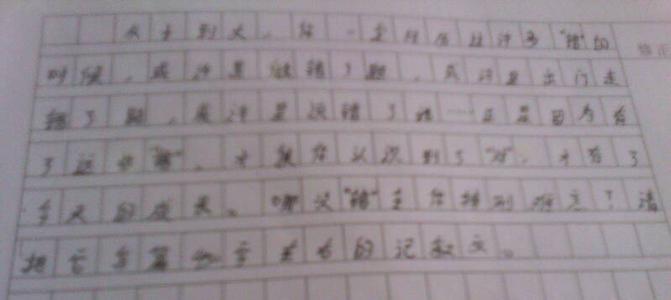 从小到大，你一定经历过许多"错"的
时候，或许是做错了题，或许是出门走
错了路，或许是说错了话……正是因为有
了这些"错"，才教你认识到了"对"，才有了
今天的成长。哪次"错"令你特别难忘？请
把它写篇600字左右的记叙文。